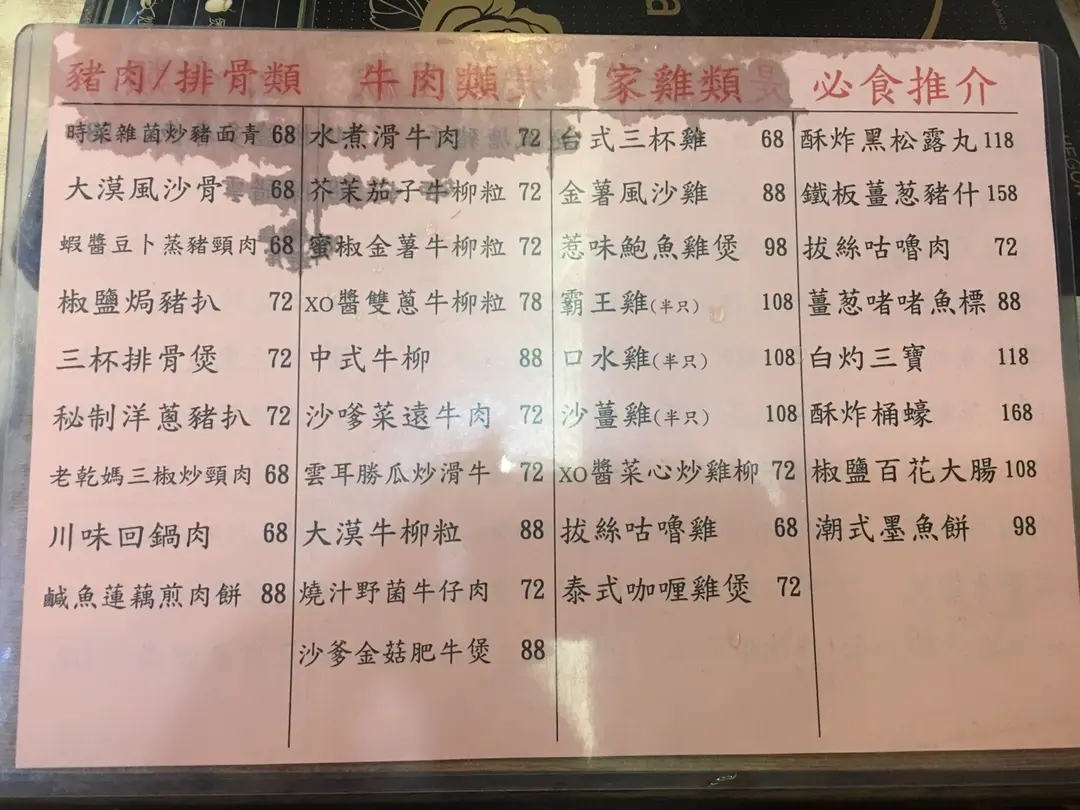 豬肉/排骨類
時菜雜菌炒豬面青 68
大漠風沙骨 68
蝦醬豆卜蒸豬頸肉 68
椒鹽焗豬扒 72
三杯排骨煲 72
秘制洋蔥豬扒 72
老乾媽三椒炒頸肉 68
川味回鍋肉 68
鹹魚蓮藕煎肉餅 88
牛肉類
水煮滑牛肉 72
芥茉茄子牛柳粒 72
蜜椒金薯牛柳粒 72
XO醬雙蔥牛柳粒 78
中式牛柳 88
沙嗲菜遠牛肉 72
雲耳勝瓜炒滑牛 72
大漠牛柳粒 88
燒汁野菌牛仔肉 72
沙爹金菇肥牛煲 88
家雞類
台式三杯雞 68
金薯風沙雞 88
惹味鮑魚雞煲 98
霸王雞(半只) 108
口水雞(半只) 108
沙薑雞(半只) 108
XO醬菜心炒雞柳 72
拔絲咕嚕雞 68
泰式咖喱雞煲 72
必食推介
酥炸黑松露丸 118
鐵板薑葱豬什 158
拔絲咕嚕肉 72
薑葱啫啫魚標 88
白灼三寶 118
酥炸桶蠔 168
椒鹽百花大腸 108
潮式墨魚餅 98